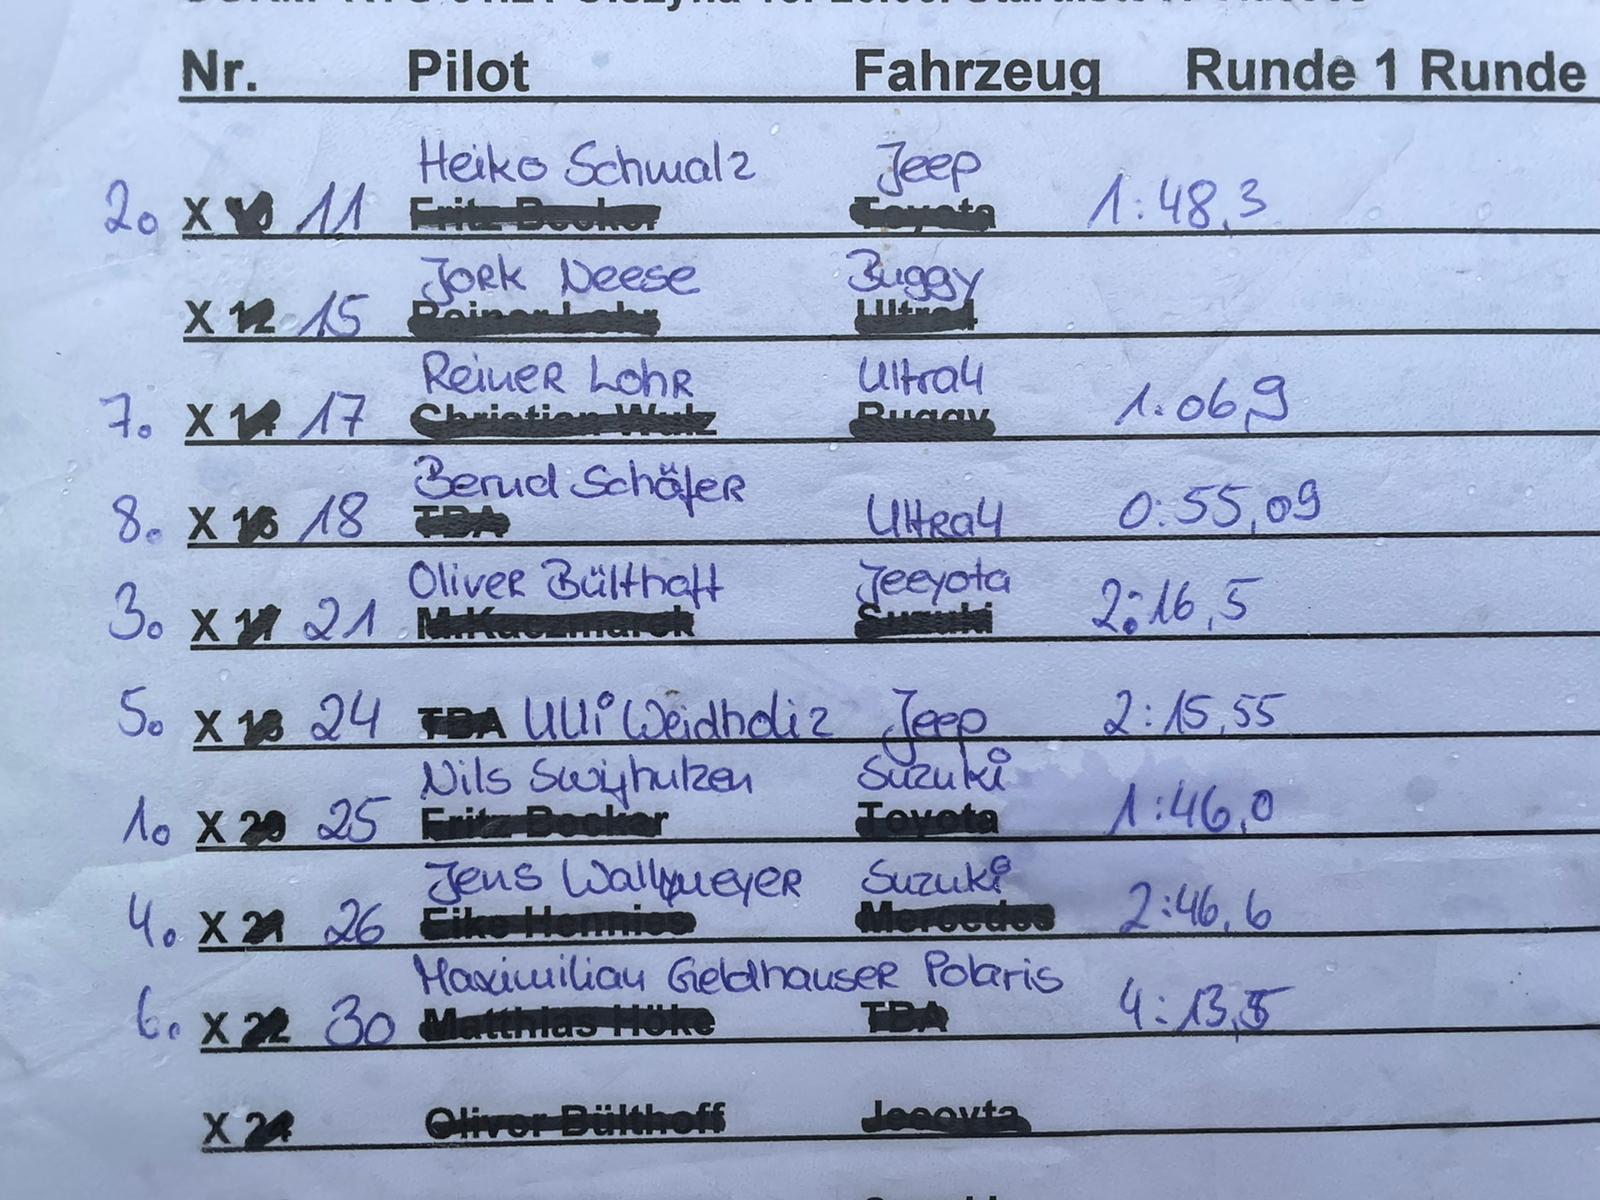 Nr. Pilot Fahrzeug Runde 1 Runde
Heiko Schmalz Jeep
2. X 10 11 Fritz Becker Toyota 1:48,3
Jork Neese Buggy
X 12 15 Reiner Lohr Ultra4
Reiner Lohr Ultra4
7. X 14 17 Christian Wulz Buggy 1:06,9
Bernd Schäfer
8. X 16 18 TBA Ultra4 0:55,09
Oliver Bülthoff Jeeyota
3. X 17 21 M.Kaczmarek Suzuki 2:16,5
5. X 18 24 TBA Ulli Weidholz Jeep 2:15,55
Nils Swijhulzen Suzuki
1. X 20 25 Fritz Becker Toyota 1:46,0
Jens Wallmeyer Suzuki
4. X 21 26 Eike Hennies Mercedes 2:46,6
Maximilian Geldhauser Polaris
6. X 22 30 Matthias Höke TBA 4:13,5
X 24 Oliver Bülthoff